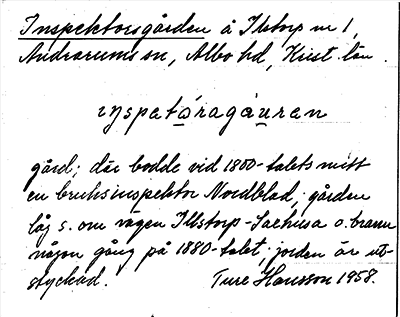 Inspektorsgården å Illstorp nr 1,
Andrarums sn, Albo hd, Krist. län.
ıŋspetọ́ragạ̊uren
gård; där bodde vid 1800-talets mitt
en bruksinspektor Nordblad; gården
låg s. om vägen Illstorp-Laehusa o. brann
någon gång på 1880-talet; jorden är ut-
styckad. Ture Hansson 1958.